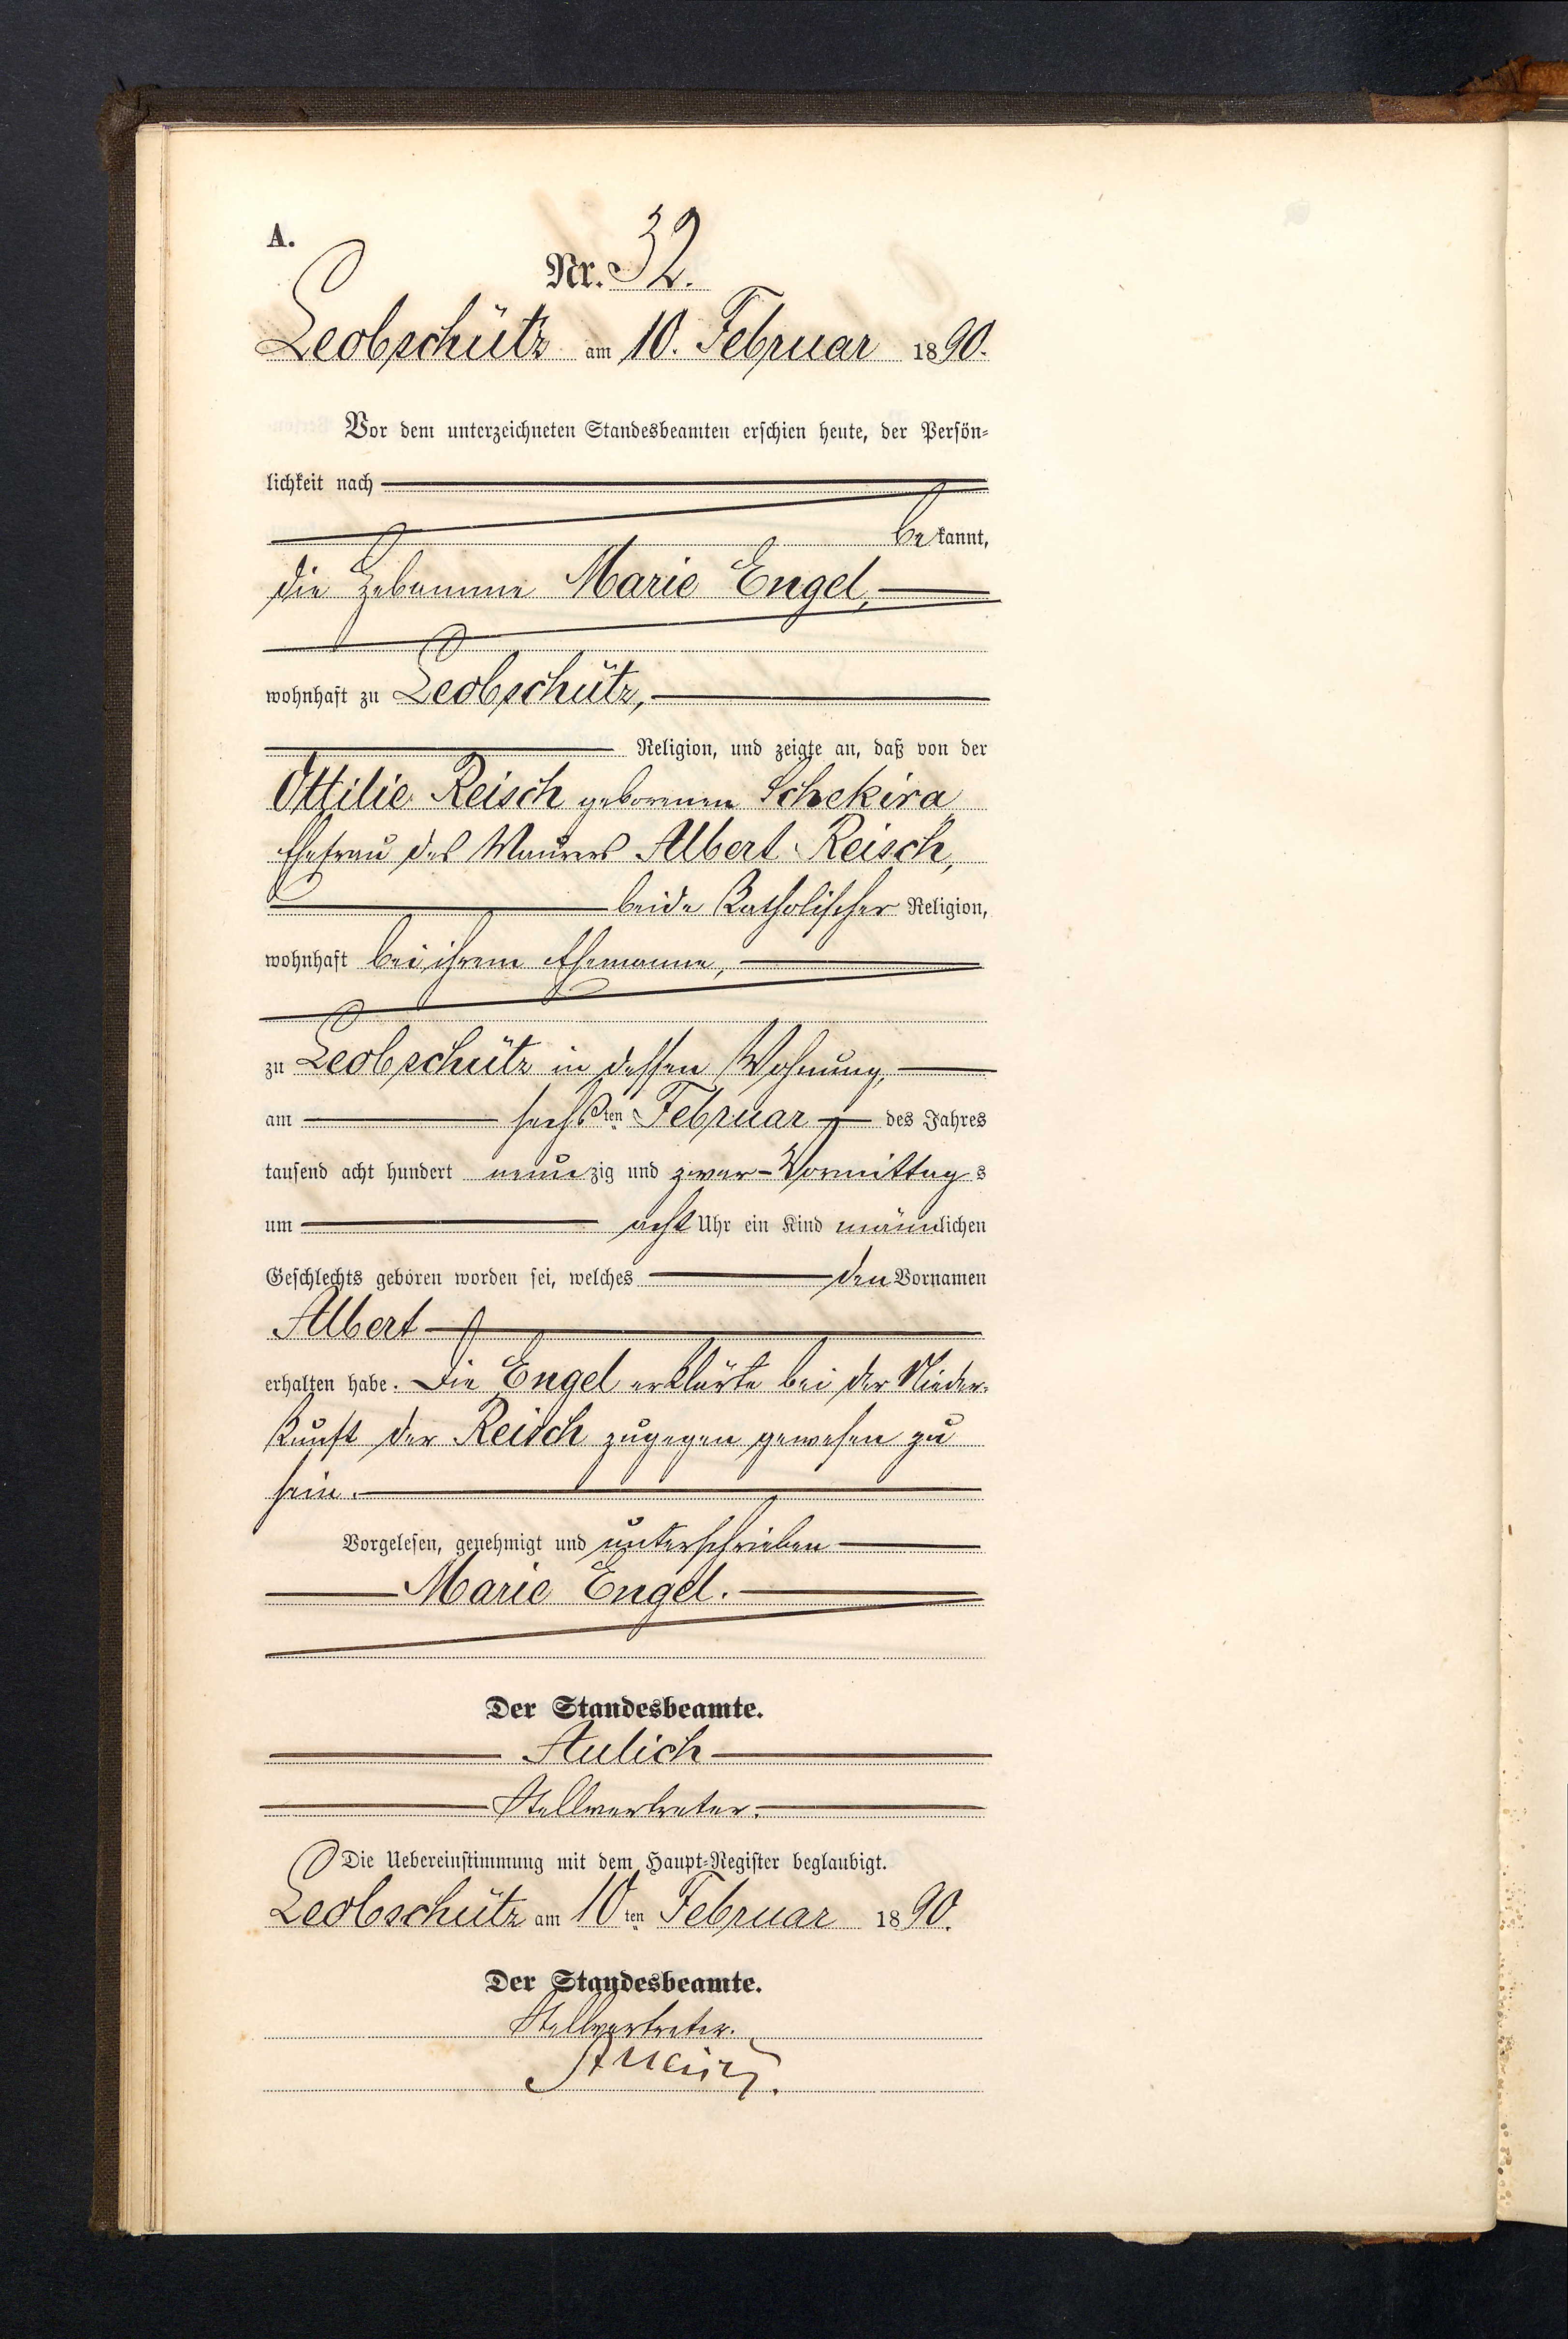 A.
Nr. 32.
Leobschütz am 10. Februar 1890.
Vor dem unterzeichneten Standesbeamten erschien heute, der Persön-
lichkeit nach
bekannt,
die Hebamme Marie Engel,
wohnhaft zu Leobschütz,
Religion, und zeigte an, daß von der
Ottilie Reisch geborenen Schekira
Ehefrau des Maurers Albert Reisch,
beide Katholischer Religion,
wohnhaft bei ihrem Ehemanne,
zu Leobschütz in dessen Wohnung,
am sechsten Februar des Jahres
tausend acht hundert neunzig und zwar Vormittags
um acht Uhr ein Kind männlichen
Geschlechts geboren worden sei, welches den Vornamen
Albert
erhalten habe. Die Engel erklärte bei der Nieder-
kunft der Reisch zugegen gewesen zu
sein.
Vorgelesen, genehmigt und unterschrieben
Marie Engel.
Der Standesbeamte.
Aulich
Stellvertreter.
Die Uebereinstimmung mit dem Haupt-Register beglaubigt.
Leobschütz am 10ten Februar 1890.
Der Standesbeamte.
Stellvertreter.
Aulich.